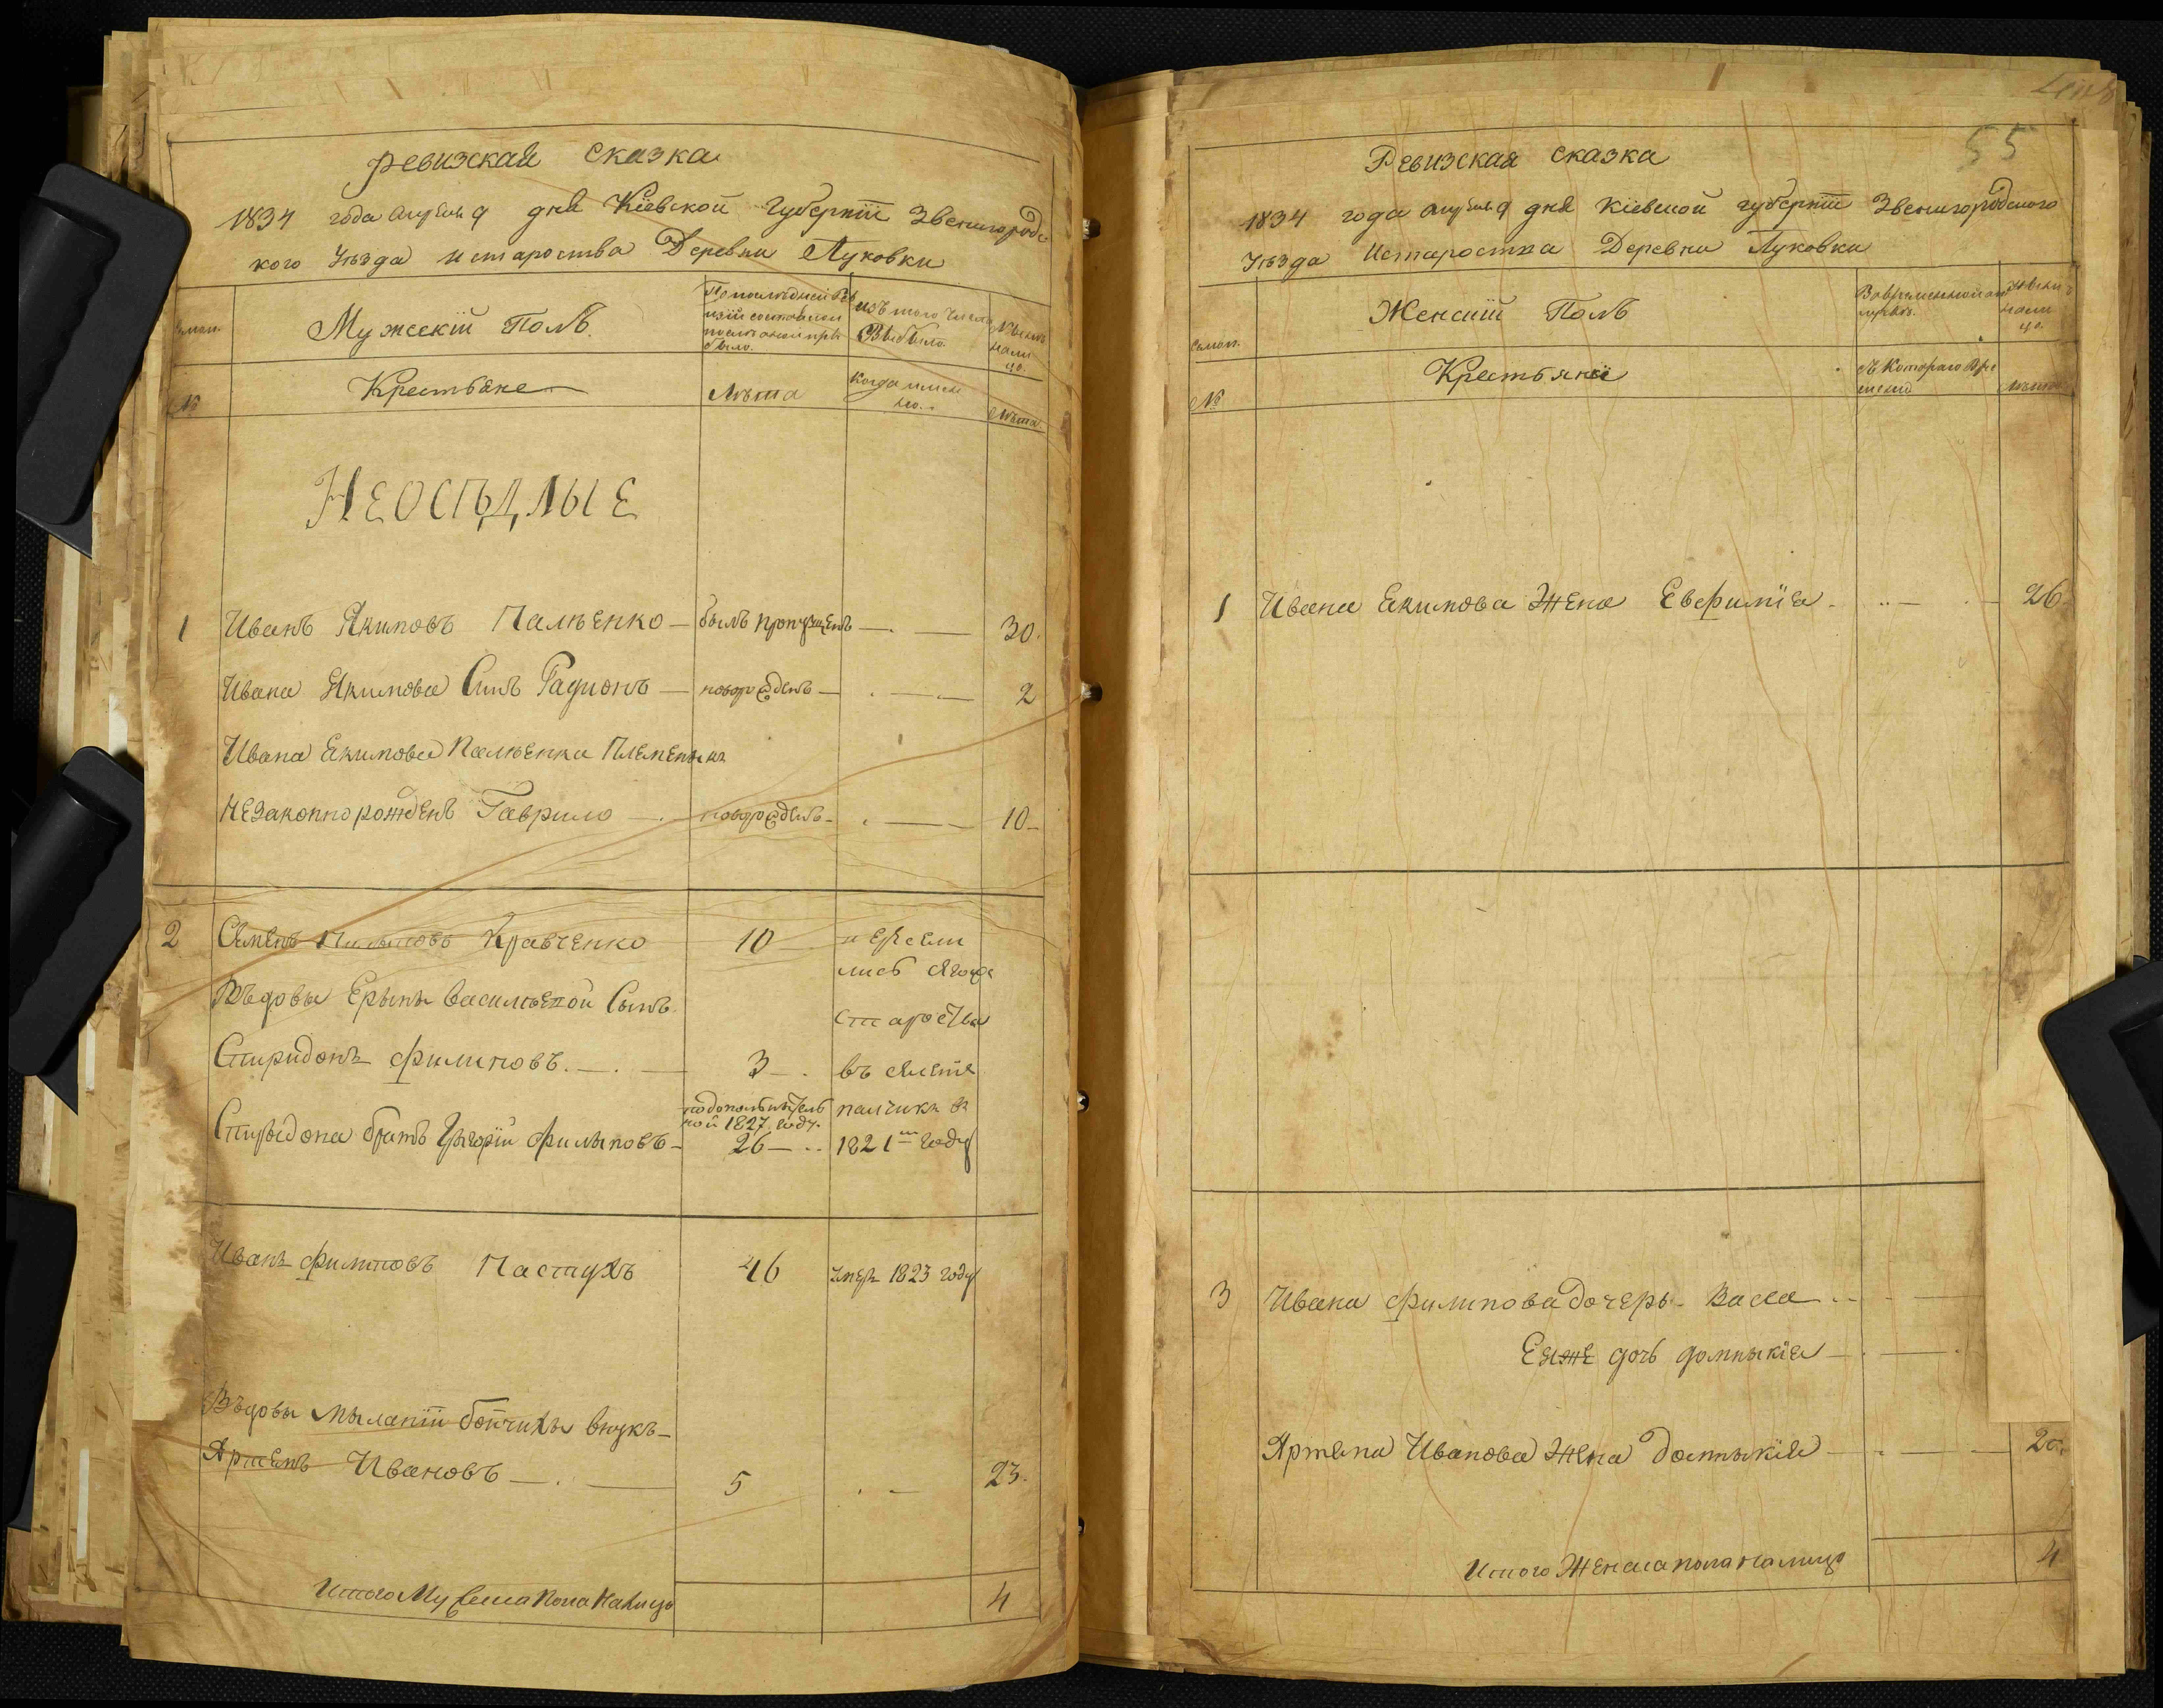 Ревизская сказка
1834 года апреля 9 дня Кіевской Губерніи Звенигородс
кого Уѣзда и староства Деревни Луковки
Мужескій Полъ
По послѣдней Ре
визіи состояло и
послѣ оной при
было.
изъ того числа
Выбыло
Нынѣ
нали
цо.
№
Крестьяне
Лѣта
Когда имен
но.
Лѣта
НЕОСѢДЛЫЕ
1 Иванъ Якимовъ Палѣенко — былъ пропущенъ — . — 30.
Ивана Якимова Синъ Радионъ — новорожденъ — . — . — 2
Ивана Екимова Палѣенка Племеникъ
Незаконнорожденъ Гаврило — . новорожденъ — . — 10 —
2 Семенъ Кравченко 10 пересели
лись
Въдовы Ерыны Васильевой Сынъ
староства
Спиридонъ Филиповъ . — . — 3 — . въ селеніе
по дополнитель
ной 1827 году.
Спиридона братъ Грыгорій Филыповъ — 26 — ..
1821 году
Иванъ Филиповъ Пастухъ 46 умеръ 1823 году
Въдовы Мыланіи Бойчихы внукъ —
Артемъ Ивановъ — . — 5 . — 23.
Итого Мужеска Пола Налицо 4
55
Ревизская сказка
1834 года апреля 9 дня Кіевской губерніи Звенигородского
Уѣзда Истароства Деревни Луковки
Женскій Полъ
Во временной от
лучкѣ.
Нынѣ
нали
цо.
№
Крестьяне
Съ Котораго Вре
мени
Лѣта
1 Ивана Екимова Жена Евфимія . .. — . — 26.
3 Ивана Филипова дочерь — Васса .. — . —
Еяже дочь домныкія — . — .
Артема Иванова Жена Домныкія — . — 20.
Итого Женска пола налицо 4